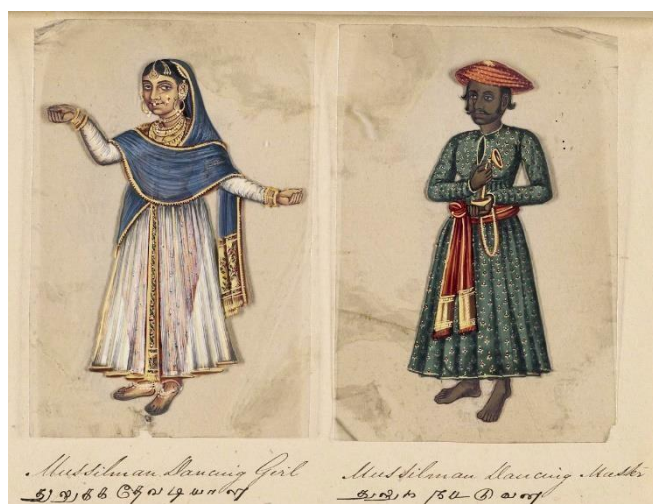 Mussilman Dancing Girl
துலுக்க தேவடியாள்
Mussilman Dancing Master
துலுக்க நட்டுவன்